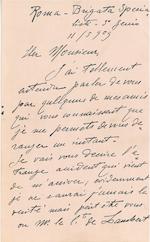 Roma - Brigata Specialisti - 3° Genio
11/5 909
Cher Monsieur,
J'ai tellement
entendu parler de vous
par quelques de mes amis
qui vous connaissent que
je me permets de vous dé
ranger un instant.
Je vais vous écrire
étrange accident qui vient
de m'arriver, évidemment
je ne saurai jamais la
vérité mais peut être vous
ou M. le C.te de Lambert